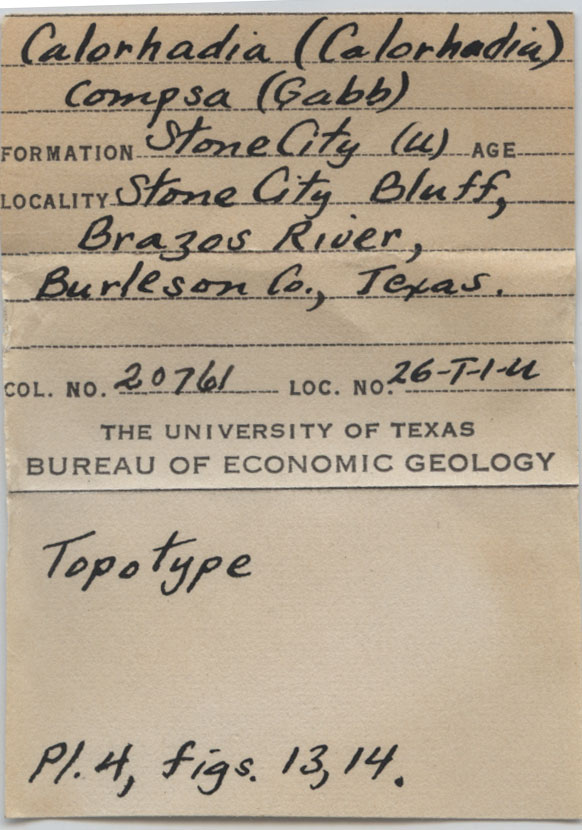 Calorhadia (Calorhadia)
compsa (Gabb)
FORMATION Stone City (u) AGE
LOCALITY Stone City Bluff,
Brazos River,
Burleson Co., Texas.
COL. NO. 20761 LOC. NO. 26-T-1-U
THE UNIVERSITY OF TEXAS
BUREAU OF ECONOMIC GEOLOGY
Topotype
Pl. 4, figs. 13, 14.